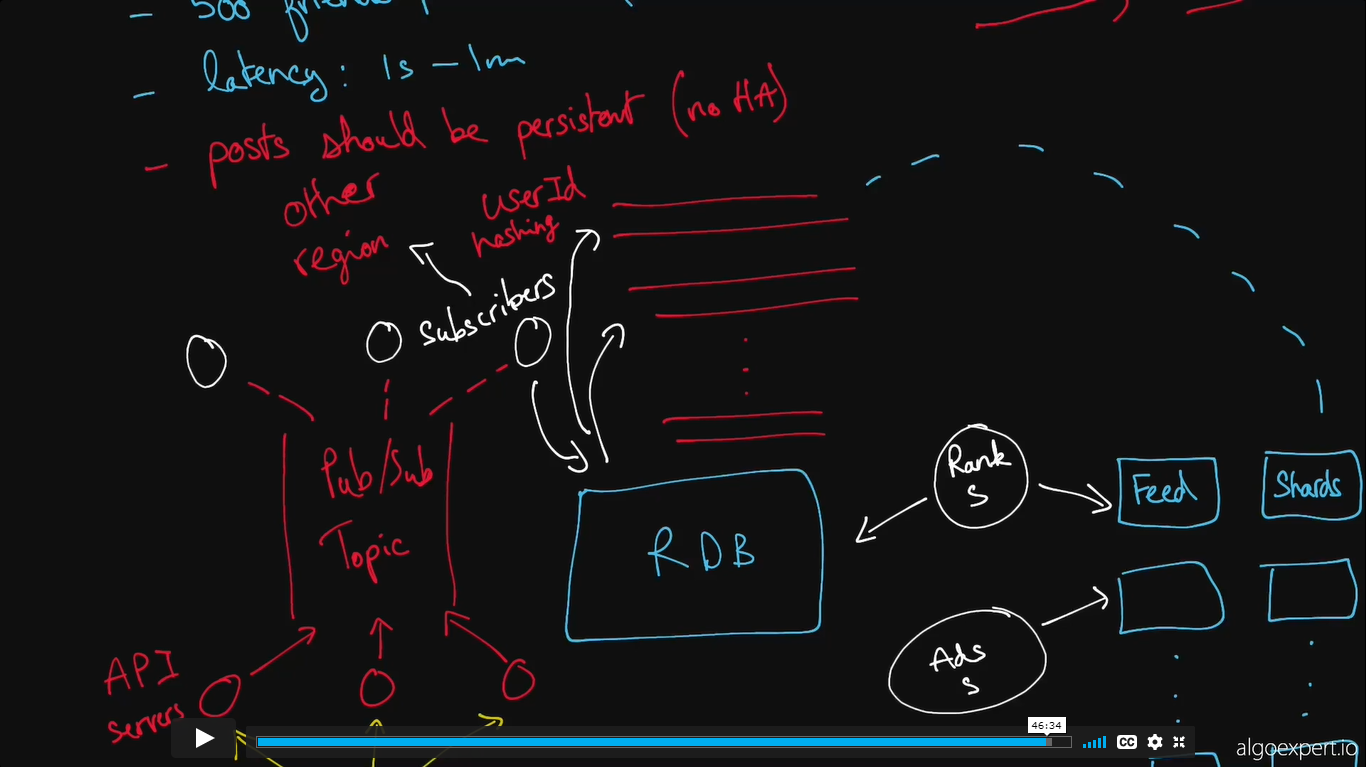 - 500
- latency: 1s - 1m
- posts should be persistent (no HA)
other
region
userId
hashing
subscribers
Pub/Sub
Topic
RDB
Rank
S
Feed
Shards
Ads
S
API
servers
46:34
CC
algoexpert.io